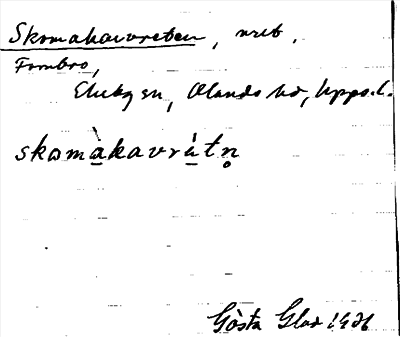 Skomakarvreten, vret.
Fornbro,
Ekeby sn, Olands hd, Upps. l.
skomàkavrètn̥
Gösta Glad 1926